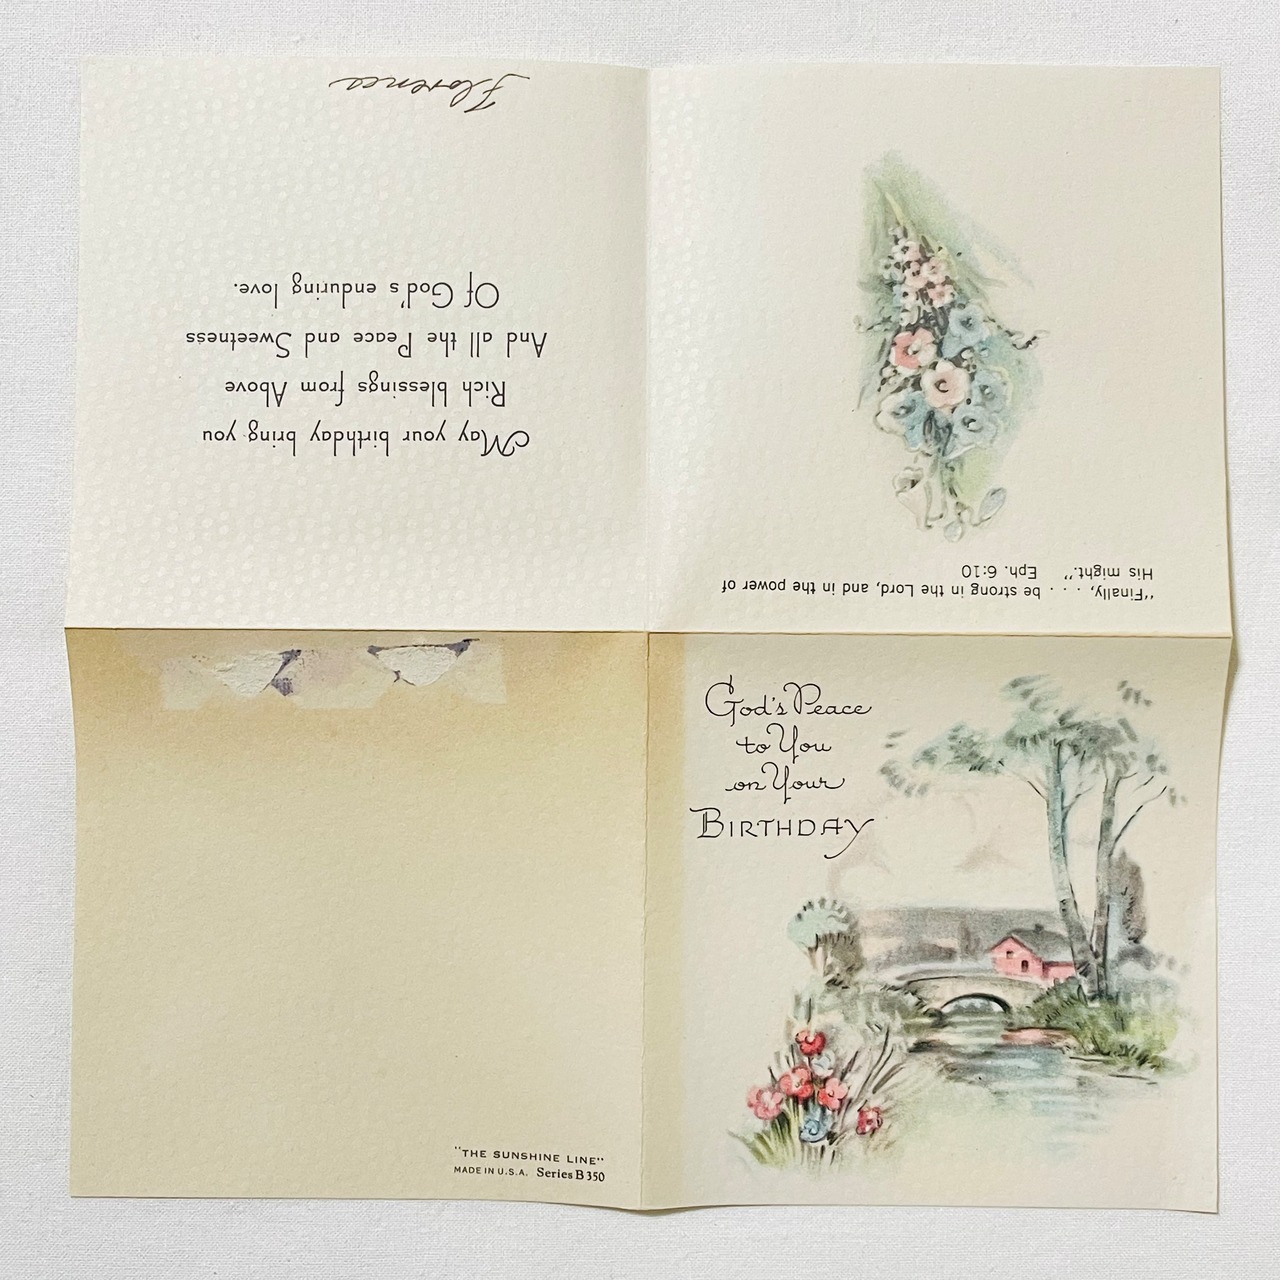 God's Peace
to You
on Your
BIRTHDAY
"Finally, . . . be strong in the Lord, and in the power of
His might." Eph. 6:10
May your birthday bring you
Rich blessings from Above
And all the Peace and Sweetness
Of God's enduring love.
Florence
"THE SUNSHINE LINE"
MADE IN U.S.A. Series B 350